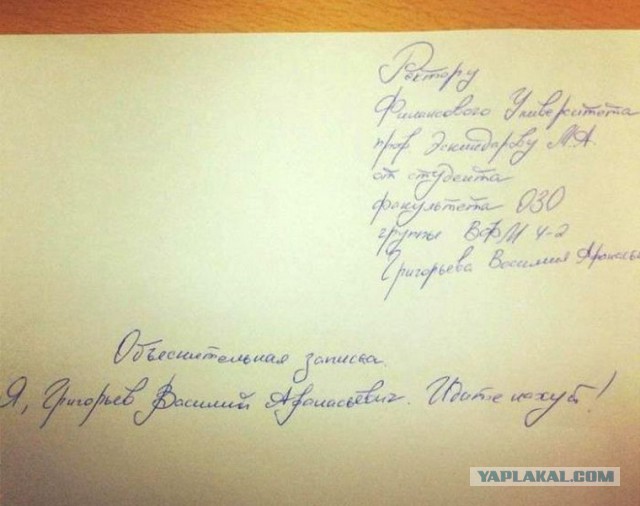 Ректору
Финансового Университета
проф. Эскиндарову М.А.
от студента
факультета ОЗО
группы ВФМ 4-2
Григорьева Василия Афанасье
Объеснительная записка.
Я, Григорьев Василий Афанасьевич. Идите нахуй!
YAPLAKAL.COM